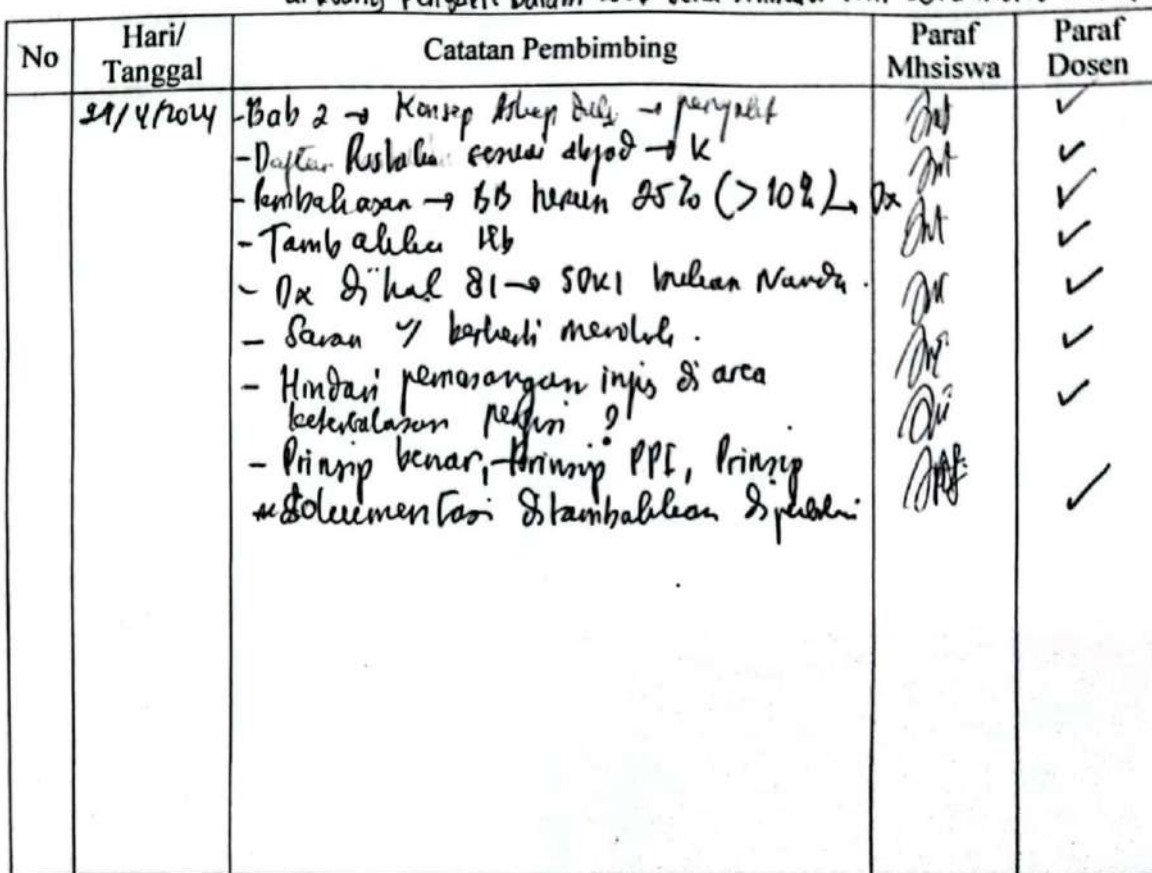 Penyakit Dalam
No
Hari/
Tanggal
Catatan Pembimbing
Paraf
Mhsiswa
Paraf
Dosen
-Bab 2 → Konsep Askep → penyakit
-Daftar Pustaka sesuai abjad → K
- Pembahasan → BB turun 25% (>10% ↳ Dx
- Tambahkan
- Dx di hal 81 → SDKI bukan Nanda.
- Saran
- Hindari pemasangan infus di area
keterbatasan perfusi ?
- Prinsip benar, Prinsip PPI, Prinsip
dokumentasi ditambahkan